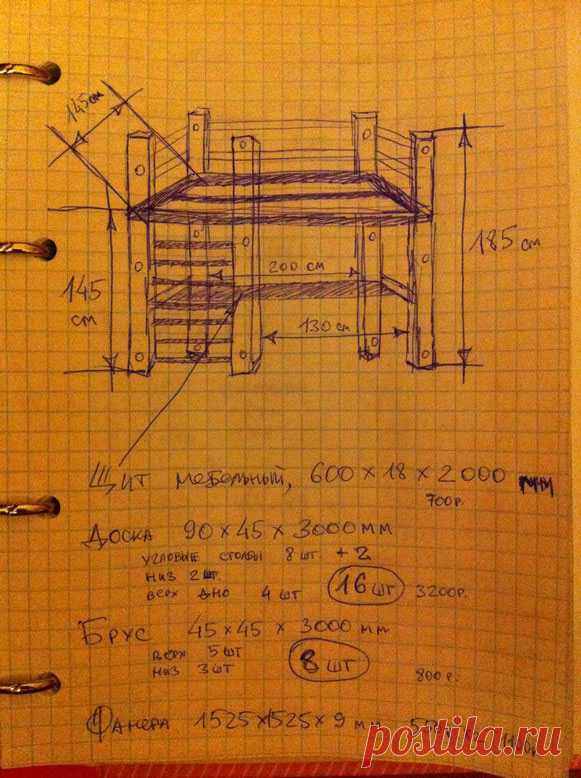 145см
185 см
200 см
145
см
130см
Щит мебельный, 600 × 18 × 2000 мм
700р.
Доска 90 × 45 × 3000 мм
угловые столбы 8 шт. + 2
низ 2 шт.
верх дно 4 шт 16 шт 3200р.
Брус 45 × 45 × 3000 мм
верх 5 шт
низ 3 шт 8 шт 800р.
Фанера 1525×1525 × 9 мм
postila.ru